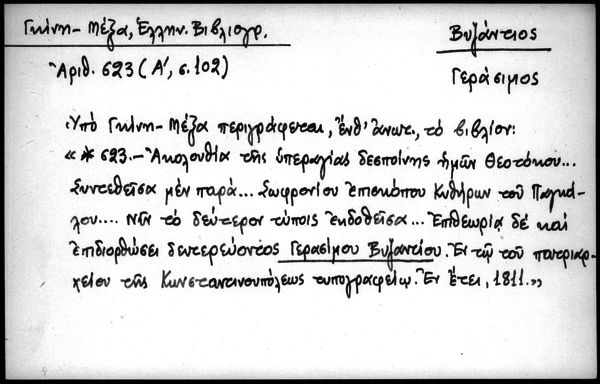 Γκίνη - Μέξα, Ἑλλην. Βιβλιογρ.
Βυζάντιος
Ἀριθ. 623 (Α', σ. 102)
Γεράσιμος
Ὑπὸ Γκίνη - Μέξα περιγράφεται, ἔνθ' ἄνωτ., τὸ βιβλίον:
«* 623.- Ἀκολουθία τῆς ὑπεραγίας δεσποίνης ἡμῶν Θεοτόκου...
Συντεθεῖσα μὲν παρὰ... Σωφρονίου ἐπισκόπου Κυθήρων τοῦ Παγκά-
λου.... Νῦν τὸ δεύτερον τύποις ἐκδοθεῖσα... Ἐπιθεωρίᾳ δὲ καὶ
ἐπιδιορθώσει δευτερεύοντος Γερασίμου Βυζαντίου. Ἐν τῷ τοῦ πατριαρ-
χείου τῆς Κωνσταντινουπόλεως τυπογραφείῳ. Ἐν ἔτει, 1811.»